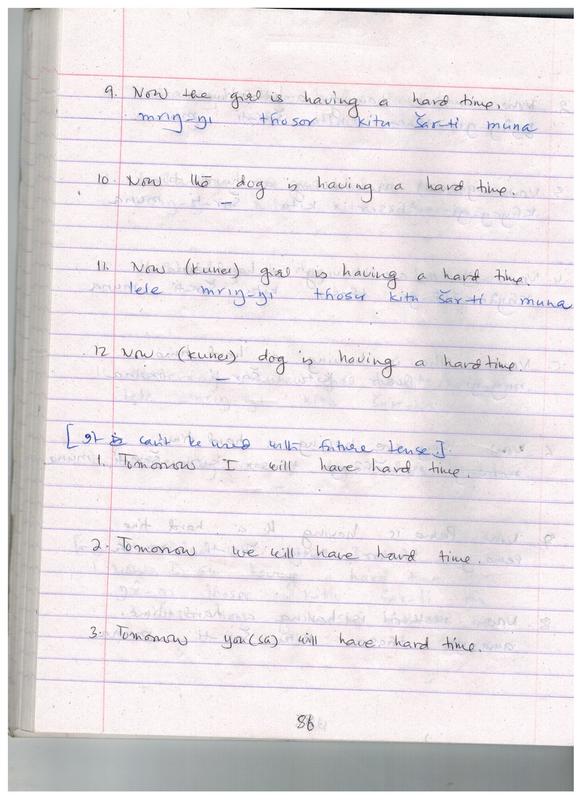 9. Now the girl is having a hard time.
mrɪŋ-ŋɪ thosor kitu šar-ti muna
10. Now the dog is having a hard time.
–
11. Now (kunei) girl is having a hard time.
lele mrɪŋ-ŋɪ thosur kitu šar-ti muna
12 Now (kunei) dog is having a hard time.
–
[It is can't be used with future tense.]
1. Tomorrow I will have hard time.
2. Tomorrow we will have hard time.
3. Tomorrow you (sa) will have hard time.
86